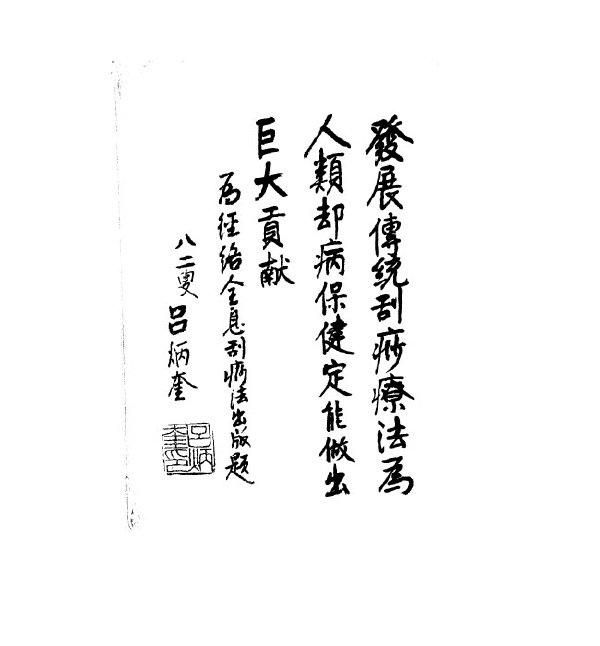 發展傳統刮痧療法為
人類却病保健定能做出
巨大貢献
為經絡全息刮痧法出版題
八二叟 吕炳奎
吕炳奎印